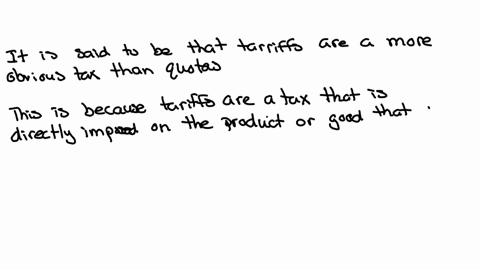 It is said to be that tarriffs are a more
obvious tax than quotas
This is because tariffs are a tax that is
directly imposed on the product or good that